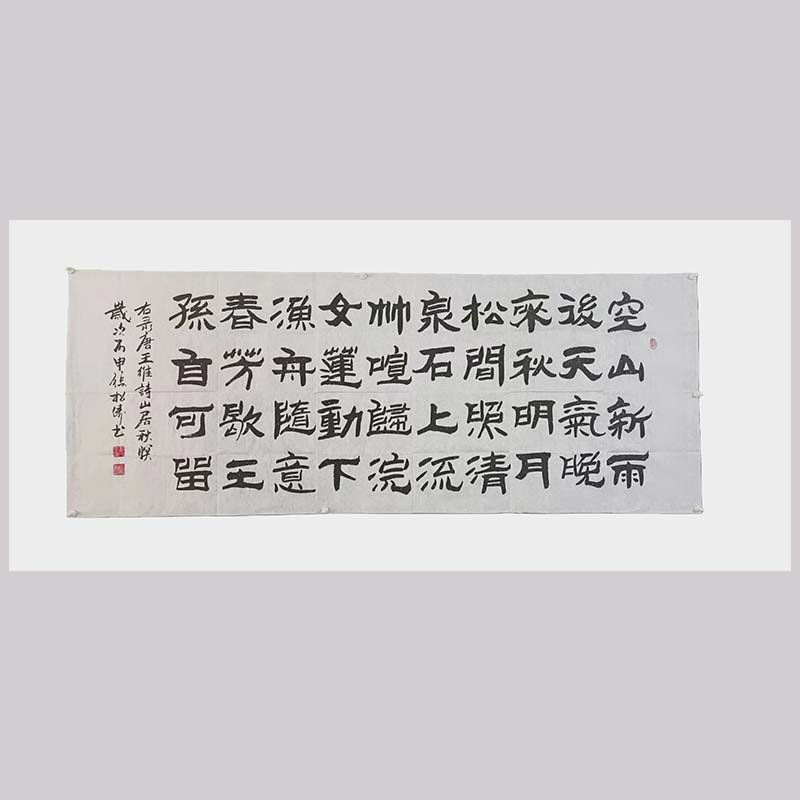 空山新雨
後天氣晚
來秋明月
松間照清
泉石上流
竹喧歸浣
女蓮動下
漁舟隨意
春芳歇王
孫自可留
右录唐王維詩山居秋暝
歲次丙申徐松涛书